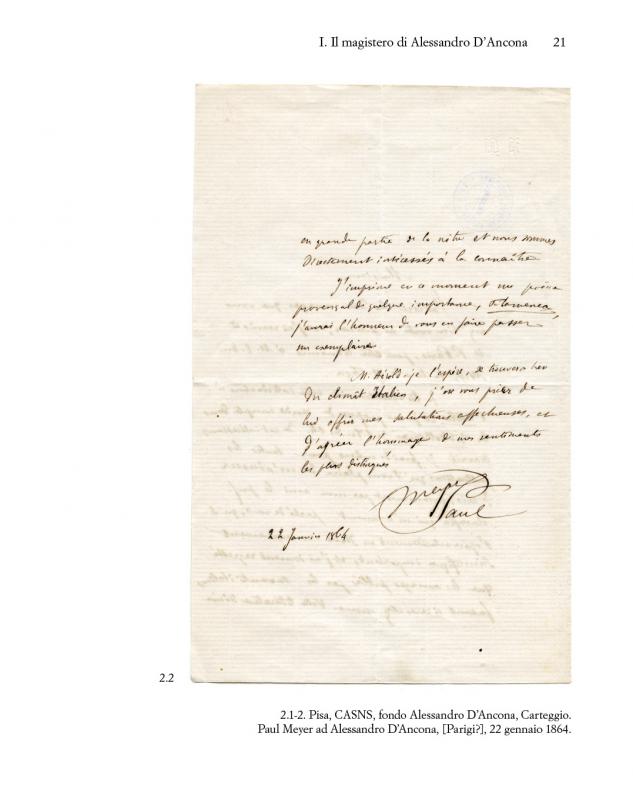 I. Il magistero di Alessandro D'Ancona 21
en grande partie de la nôtre et nous sommes
Directement intéressés à la connaître
J'imprime en ce moment un poëme
provençal de quelque importance, Flamenca,
j'aurai l'honneur de vous en faire passer
un exemplaire
M. Hérold je l'espère, se trouvera bien
Du climat Italien, j'ose vous prier de
lui offrir mes salutations affectueuses, et
D'agréer l'hommage de mes sentiments
les plus distingués
Meyer
Paul
22 Janvier 1864
2.2
2.1-2. Pisa, CASNS, fondo Alessandro D'Ancona, Carteggio.
Paul Meyer ad Alessandro D'Ancona, [Parigi?], 22 gennaio 1864.